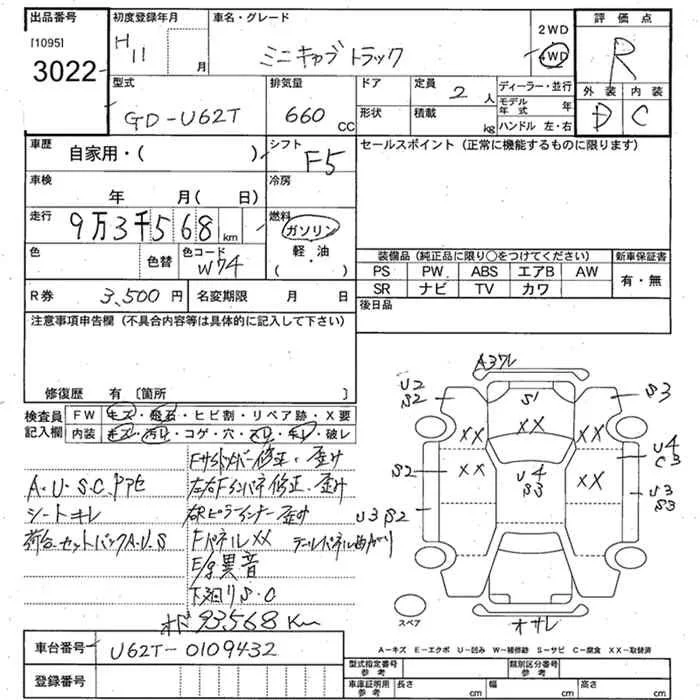 出品番号 初度登録年月 車名・グレード 評価点
[1095] 3022
H11 月 ミニキャブトラック 2WD 4WD R
外装 内装
D C
型式 排気量 ドア 定員 ディーラー・並行
GD-U62T 660 CC 2人 モデル年式 年
形状 積載 kg ハンドル 左・右
車歴 自家用・( ) シフト F5 セールスポイント(正常に機能するものに限ります)
車検 年 月( 日) 冷房
走行 9万3千568km 燃料 ガソリン 軽・油 ( )
色 色替 色コード W74
装備品(純正品に限り○をつけてください) 新車保証書
PS PW ABS エアB AW 有・無
SR ナビ TV カワ
R券 3,500円 名変期限 月 日 後日品
注意事項申告欄(不具合内容等は具体的に記入して下さい)
修復歴 有〔箇所 〕
検査員記入欄 FW キズ・飛石・ヒビ割・リペア跡・X要
内装 キズ・汚レ・コゲ・穴・スレ・キレ・破レ
Fサイドメンバー修正、歪み
A.U.S.C.アアセ 左右Fインパネ修正、歪み
シートキレ 右Rピラーインナー歪み
荷台セットバックA.U.S Fパネルxx テールパネル曲がり
E/g異音
下廻りS.C
オド 93568Km
A3ワレ
U2 S2 S1 S3
XX XX XX
U4 C3
S2 XX U4 S3 XX
U3 S3
U3S2
オサレ
スペア
A-キズ E-エクボ U-凹み W-補修跡 S-サビ C-腐食 XX-取替済
車台番号 U62T-0109432
登録番号
型式指定番号参考 類別区分番号参考
車庫証明用参考 長さ cm 幅 cm 高さ cm